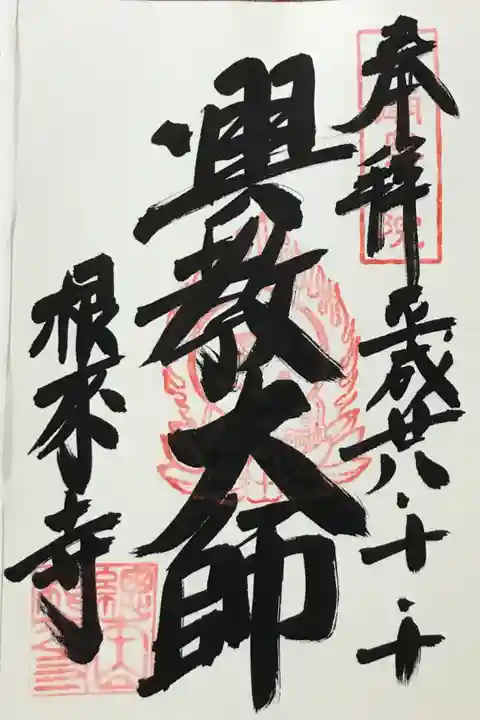 奉拝
平成廿八・十・十
興教大師
根来寺